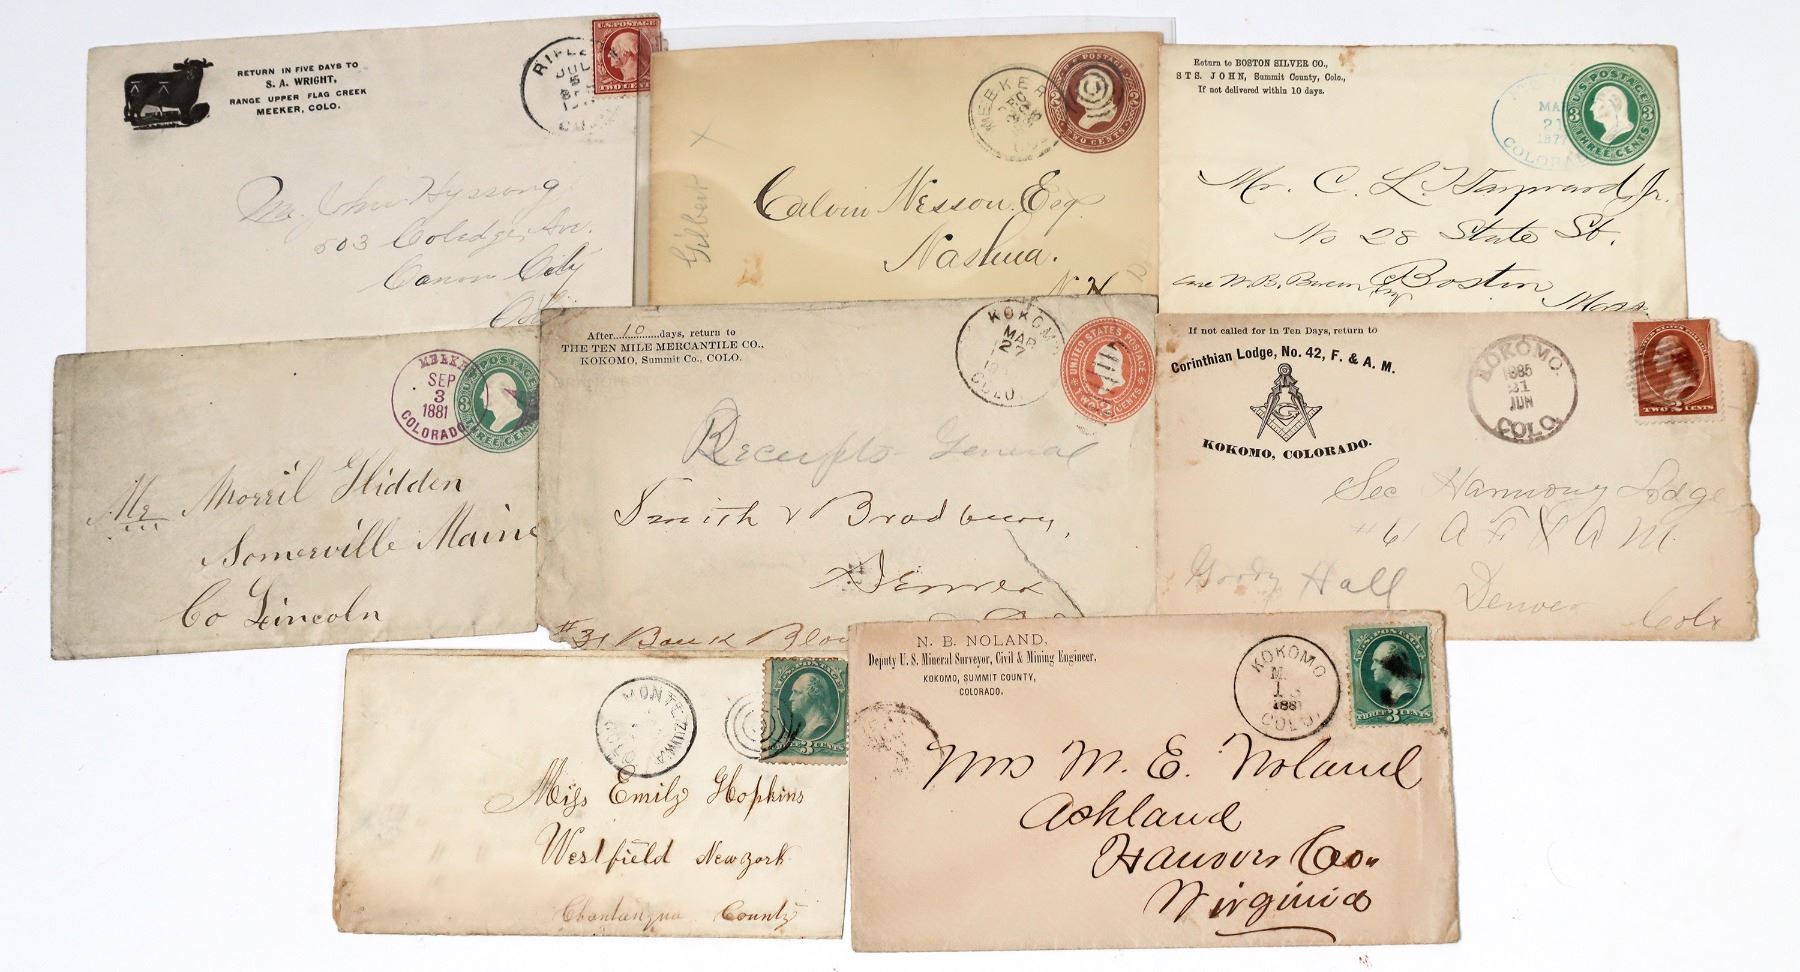 RETURN IN FIVE DAYS TO
S. A. WRIGHT,
RANGE UPPER FLAG CREEK
MEEKER, COLO.
U.S. POSTAGE
TWO CENTS
JUL
5
Mr. John Hyssong
503 Coledge Ave.
Canon City
MEEKER
TWO CENTS
Gilbert
Calvin Wesson. Esq.
Nashua.
N. H
Return to BOSTON SILVER CO.,
STS. JOHN, Summit County, Colo.,
If not delivered within 10 days.
MAR
21
1877
COLORADO
U.S. POSTAGE
3 3
THREE CENTS
Mr. C. L. Hayward, Jr.
No 28 State St.
Boston
Mass.
MEEKER
SEP
3
1881
COLORADO
THREE CENTS
Mr Morril Glidden
Somerville Maine
Co Lincoln
After 10 days, return to
THE TEN MILE MERCANTILE CO.,
KOKOMO, Summit Co., COLO.
KOKOMO
MAR
27
COLO.
UNITED STATES POSTAGE
TWO CENTS
Receipts - General
Smith & Bradbury,
Denver
#31 Bank Bloc
If not called for in Ten Days, return to
Corinthian Lodge, No. 42, F. & A. M.
G
KOKOMO, COLORADO.
KOKOMO.
1885
21
JUN
COLO.
TWO 2 CENTS
Sec Harmony Lodge
#61 A F & A M.
Hall
Denver
Colo
MONTEZUMA
COLO
THREE 3 CENTS
Miss Emily Hopkins
Westfield New York
Chautauqua County
N. B. NOLAND,
Deputy U. S. Mineral Surveyor, Civil & Mining Engineer,
KOKOMO, SUMMIT COUNTY,
COLORADO.
KOKOMO
13
1881
COLO.
U.S. POSTAGE
THREE 3 CENTS
Mrs M. E. Noland
Ashland
Hanover Co.
Virginia